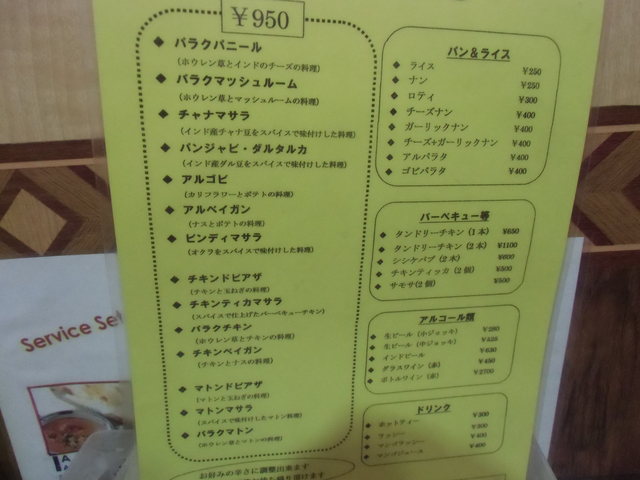 ￥950
◆ パラクパニール
(ホウレン草とインドのチーズの料理)
◆ パラクマッシュルーム
(ホウレン草とマッシュルームの料理)
◆ チャナマサラ
(インド産チャナ豆をスパイスで味付けした料理)
◆ パンジャビ・ダルタルカ
(インド産ダル豆をスパイスで味付けした料理)
◆ アルゴビ
(カリフラワーとポテトの料理)
◆ アルベイガン
(ナスとポテトの料理)
◆ ビンディマサラ
(オクラをスパイスで味付けした料理)
◆ チキンドピアザ
(チキンと玉ねぎの料理)
◆ チキンティカマサラ
(スパイスで仕上げたバーベキューチキン)
◆ パラクチキン
(ホウレン草とチキンの料理)
◆ チキンベイガン
(チキンとナスの料理)
◆ マトンドピアザ
(マトンと玉ねぎの料理)
◆ マトンマサラ
(スパイスで味付けしたマトン料理)
◆ パラクマトン
(ホウレン草とマトンの料理)
お好みの辛さに調整出来ます
パン＆ライス
◆ ライス ￥250
◆ ナン ￥250
◆ ロティ ￥300
◆ チーズナン ￥400
◆ ガーリックナン ￥400
◆ チーズ+ガーリックナン ￥400
◆ アルパラタ ￥400
◆ ゴビパラタ ￥400
バーベキュー等
◆ タンドリーチキン (1本) ￥650
◆ タンドリーチキン (2本) ￥1100
◆ シシケバブ (2本) ￥600
◆ チキンティッカ (2個) ￥500
◆ サモサ(2個) ￥500
アルコール類
◆ 生ビール (小ジョッキ) ￥280
◆ 生ビール (中ジョッキ) ￥525
◆ インドビール ￥630
◆ グラスワイン (赤) ￥450
◆ ボトルワイン (赤) ￥2700
ドリンク
◆ ホットティー ￥300
◆ ラッシー ￥300
◆ マンゴラッシー ￥400
◆ マンゴジュース ￥400
Service Set